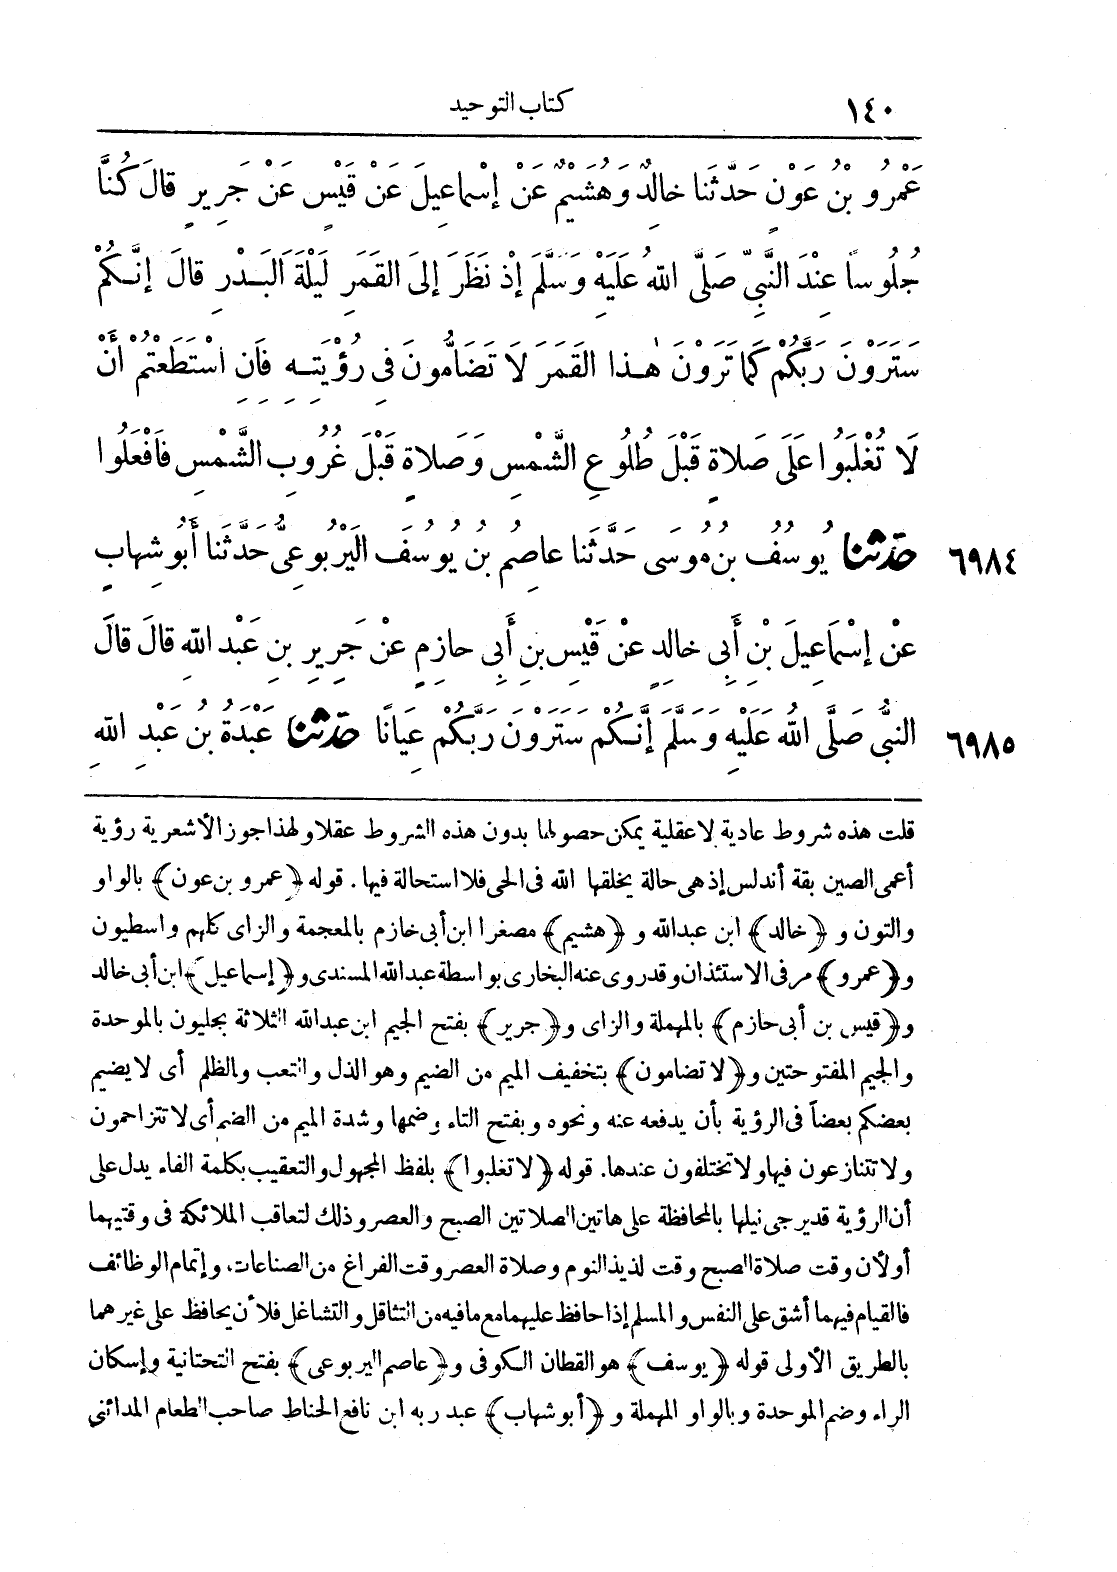 ١٤٠
كتاب التوحيد
عَمْرُو بْنُ عَوْنٍ حَدَّثَنا خالِدٌ وَهُشَيْمٌ عَنْ إِسْماعِيلَ عَنْ قَيْسٍ عَنْ جَرِيرٍ قالَ كُنَّا
جُلُوساً عِنْدَ النَّبِيِّ صَلَّى اللهُ عَلَيْهِ وَسَلَّمَ إِذْ نَظَرَ إِلَى القَمَرِ لَيْلَةَ البَدْرِ قالَ إِنَّكُمْ
سَتَرَوْنَ رَبَّكُمْ كَما تَرَوْنَ هٰذا القَمَرَ لَا تَضَامُّونَ فِى رُؤْيَتِهِ فَاِنِ اسْتَطَعْتُمْ أَنْ
لَا تُغْلَبُوا عَلَى صَلاةٍ قَبْلَ طُلُوعِ الشَّمْسِ وَصَلاةٍ قَبْلَ غُرُوبِ الشَّمْسِ فَافْعَلُوا
٦٩٨٤ حَدَّثَنَا يُوسُفُ بنُ مُوسَى حَدَّثَنا عاصِمُ بنُ يُوسُفَ اليَرْبُوعِىُّ حَدَّثَنا أَبُو شِهابٍ
عَنْ إِسْمَاعِيلَ بْنِ أَبِى خالِدٍ عَنْ قَيْسِ بنِ أَبِى حازِمٍ عَنْ جَرِيرِ بنِ عَبْدِ اللهِ قالَ قالَ
النبىُّ صَلَّى اللهُ عَلَيْهِ وَسَلَّمَ إِنَّكُمْ سَتَرَوْنَ رَبَّكُمْ عِيَانًا حَدَّثَنَا عَبْدَةُ بنُ عَبْدِ اللهِ ٦٩٨٥
قلت هذه شروط عادية لاعقلية يمكن حصولها بدون هذه الشروط عقلا ولهذا جوز الأشعرية رؤية
أعمى الصين بقة أندلس إذ هى حالة يخلقها الله فى الحى فلا استحالة فيها . قوله ﴿عمرو بن عون﴾ بالواو
والنون و ﴿خالد﴾ ابن عبدالله و ﴿هشيم﴾ مصغرا ابن أبى خازم بالمعجمة والزاى كلهم واسطيون
و﴿عمرو﴾ مر فى الاستئذان وقد روى عنه البخارى بواسطة عبدالله المسندى و﴿إسماعيل﴾ ابن أبى خالد
و﴿قيس بن أبى حازم﴾ بالمهملة والزاى و﴿جرير﴾ بفتح الجيم ابن عبدالله الثلاثة بجليون بالموحدة
والجيم المفتوحتين و﴿لا تضامون﴾ بتخفيف الميم من الضيم وهو الذل والتعب والظلم أى لا يضيم
بعضكم بعضاً فى الرؤية بأن يدفعه عنه ونحوه وبفتح التاء وضمها وشدة الميم من الضم أى لا تتزاحمون
ولا تتنازعون فيها ولا تختلفون عندها. قوله ﴿لا تغلبوا﴾ بلفظ المجهول والتعقيب بكلمة الفاء يدل على
أن الرؤية قد يرجى نيلها بالمحافظة على هاتين الصلاتين الصبح والعصر وذلك لتعاقب الملائكة فى وقتيهما
أو لأن وقت صلاة الصبح وقت لذيذ النوم وصلاة العصر وقت الفراغ من الصناعات، وإتمام الوظائف
فالقيام فيهما أشق على النفس والمسلم إذا حافظ عليهما مع ما فيه من التثاقل والتشاغل فلأن يحافظ على غيرهما
بالطريق الأولى قوله ﴿يوسف﴾ هو القطان الكوفى و﴿عاصم اليربوعى﴾ بفتح التحتانية وإسكان
الراء وضم الموحدة وبالواو المهملة و ﴿أبو شهاب﴾ عبد ربه ابن نافع الحناط صاحب الطعام المدائنى